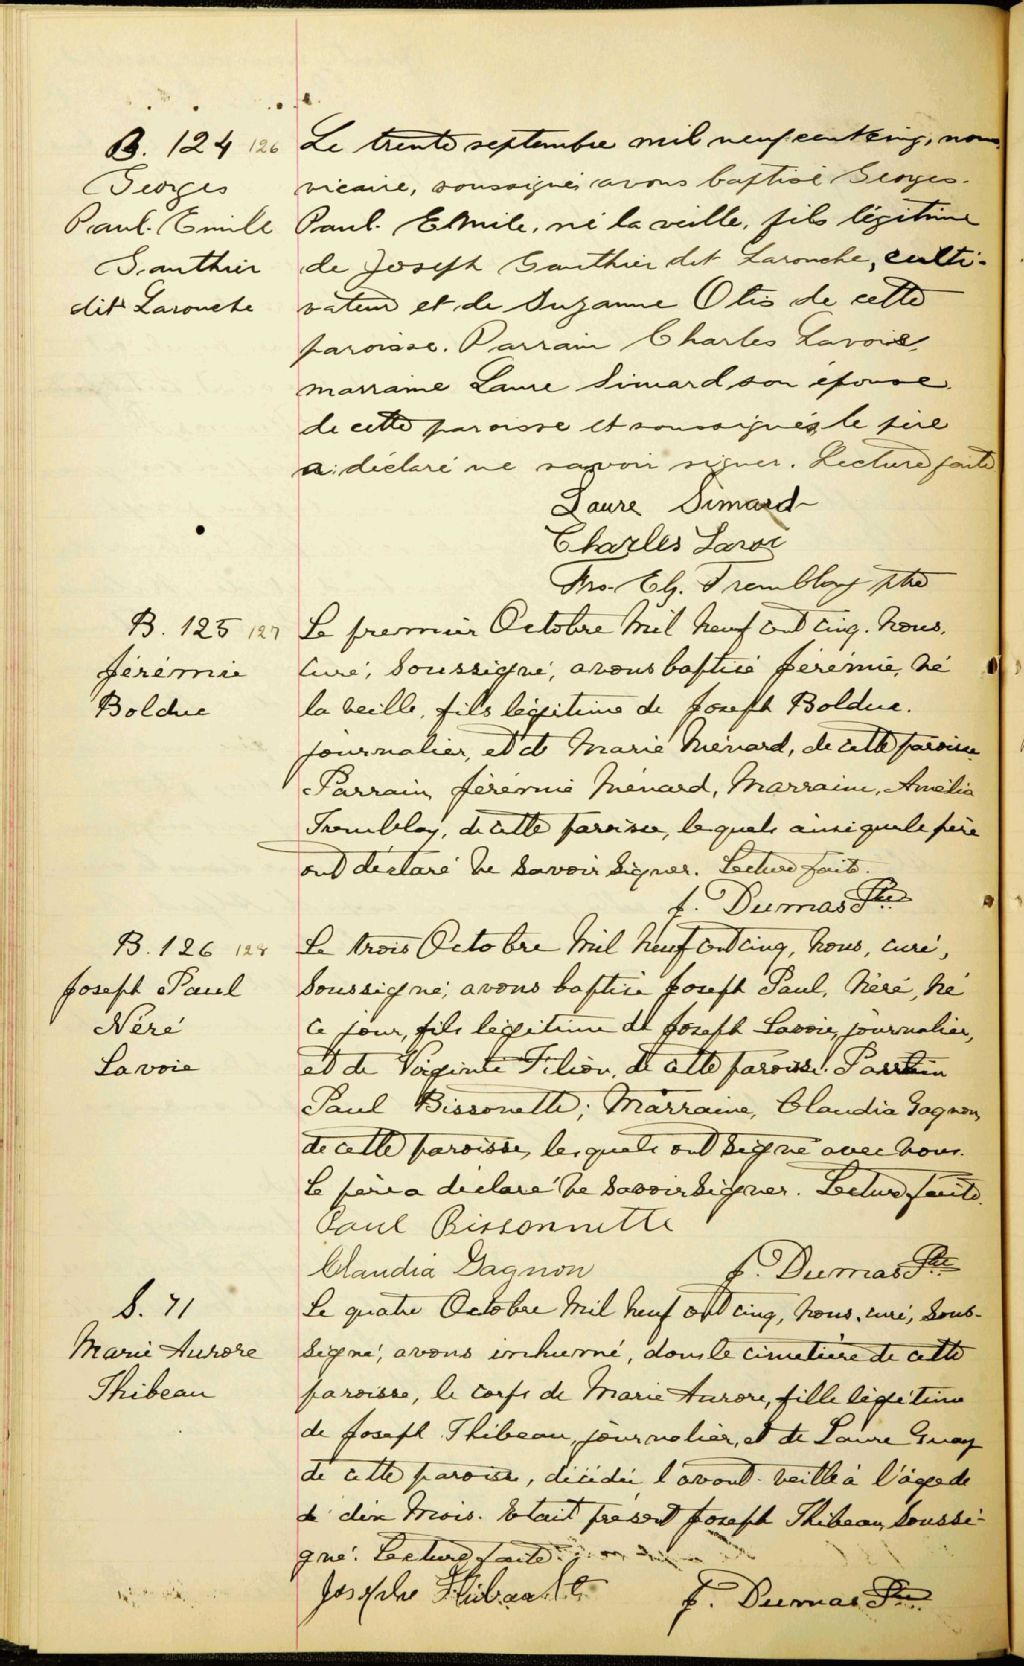 B. 124 126
Georges
Paul. Emile
Gauthier
dit Larouche
Le trente septembre mil neuf cent cinq, nous
vicaire, soussigné avons baptisé Georges.
Paul. Emile, né la veille, fils légitime
de Joseph Gauthier dit Larouche, culti-
vateur et de Suzanne Otis de cette
paroisse. Parrain Charles Lavoie,
marraine Laure Simard son épouse
de cette paroisse et soussignés, le père
a déclaré ne savoir signer. Lecture faite
Laure Simard
Charles Lavoi
Eg. Tremblay ptre
B. 125 127
Jérémie
Bolduc
Le premier Octobre Mil Neuf cent cinq. Nous,
curé, Soussigné, avons baptisé Jérémie, né
la veille, fils légitime de Joseph Bolduc.
journalier, et de Marie Ménard, de cette paroisse
Parrain Jérémie Ménard, Marraine, Amélia
Tremblay, de cette paroisse, lesquels ainsi que le père
ont déclaré ne Savoir Signer. Lecture faite.
J. Dumas Ptre
B. 126 128
Joseph Paul
Néré
Lavoie
Le trois Octobre Mil Neuf cent cinq, Nous, curé,
Soussigné, avons baptisé Joseph Paul, Néré, né
ce jour, fils légitime de Joseph Lavoie, journalier,
et de Virginie Filion, de cette paroisse. Parrain
Paul Bissonette; Marraine, Claudia Gagnon,
de cette paroisse, lesquels ont Signé avec nous.
Le père a déclaré ne Savoir Signer. Lecture faite.
Paul Bissonnette
Claudia Gagnon J. Dumas Ptre
S. 71
Marie Aurore
Thibeau
Le quatre Octobre Mil Neuf cent cinq, Nous, curé, Sous-
Signé, avons inhumé, dans le cimetière de cette
paroisse, le corps de Marie Aurore, fille légitime
de Joseph Thibeau, journalier, et de Laure Guay
de cette paroisse, décédée l'avant-veille à l'âge de
de dix Mois. Etait présent Joseph Thibeau, Soussi-
gné. Lecture faite.
Josephe Thibault J. Dumas Ptre